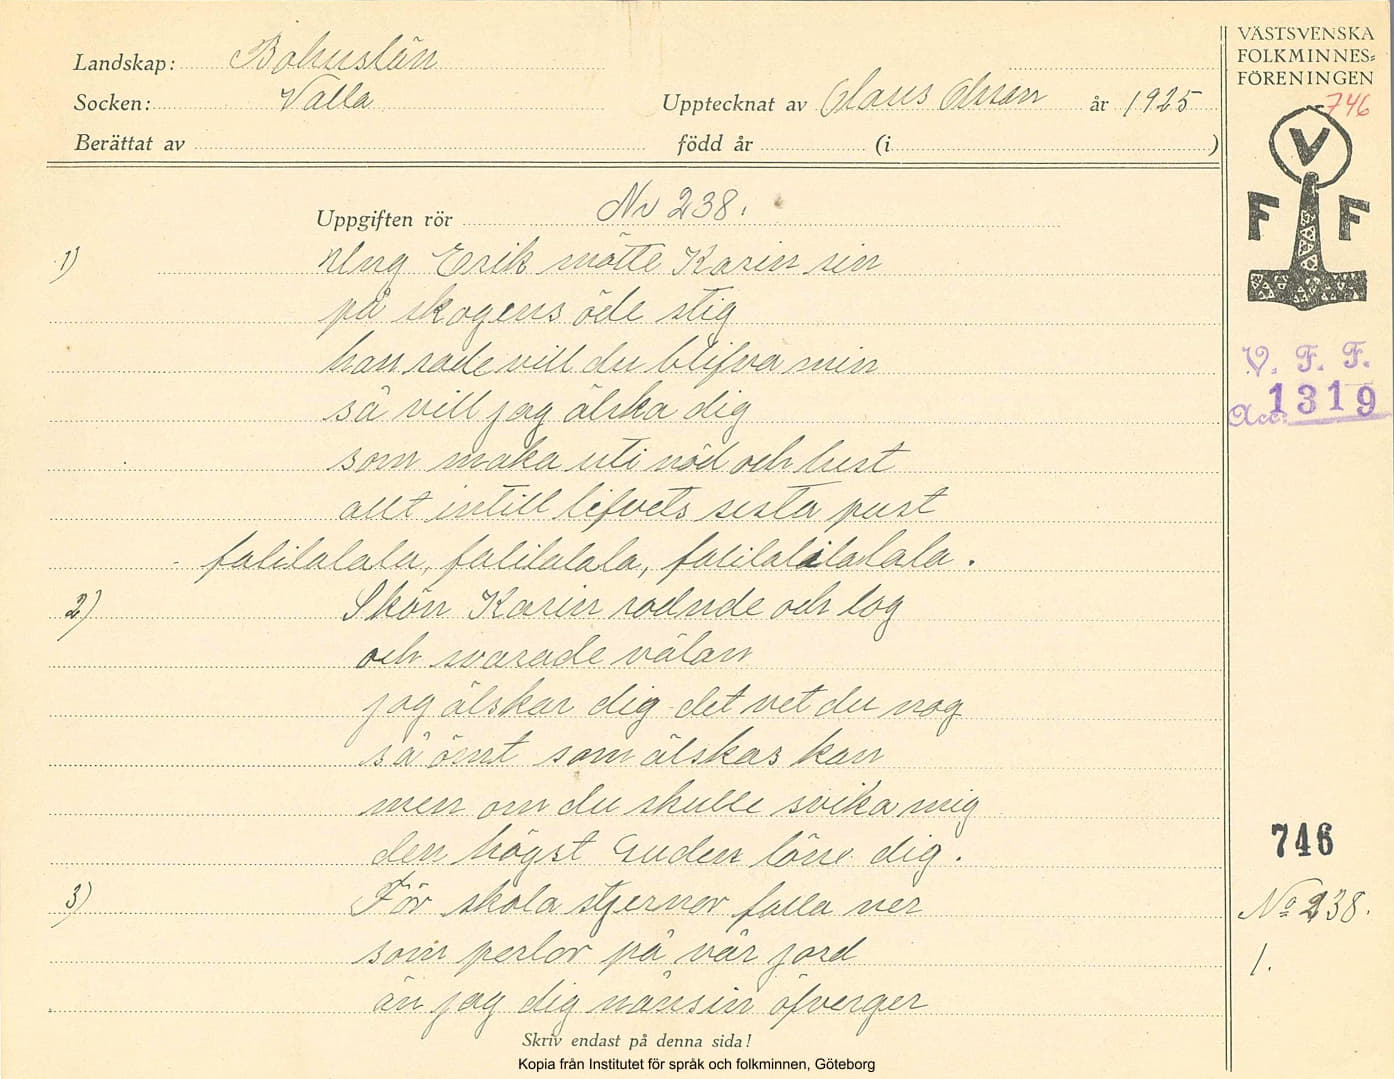 Landskap: Bohuslän
Socken: Valla
Upptecknat av Claus Olsson år 1925
Berättat av
född år (i )
VÄSTSVENSKA
FOLKMINNES=
FÖRENINGEN
746
V
F F
V. F. F.
Acc: 1319
Uppgiften rör Nr 238.
1) Ung Erik mötte Karin sin
på skogens öde stig
han sade vill du blifva min
så vill jag älska dig
som maka uti nöd och lust
allt intill lifvets sista pust
falilalala, falilalala, falilalilalala.
2) Skön Karin rodnde och log
och svarade välan
jag älskar dig det vet du nog
så ömt som älskas kan
men om du skulle svika mig
den högst Guden löne dig.
3) För skola stjernor falla ner
som perlor på vår jord
än jag dig nånsin öfverger
746
No 238.
1.
Skriv endast på denna sida!
Kopia från Institutet för språk och folkminnen, Göteborg